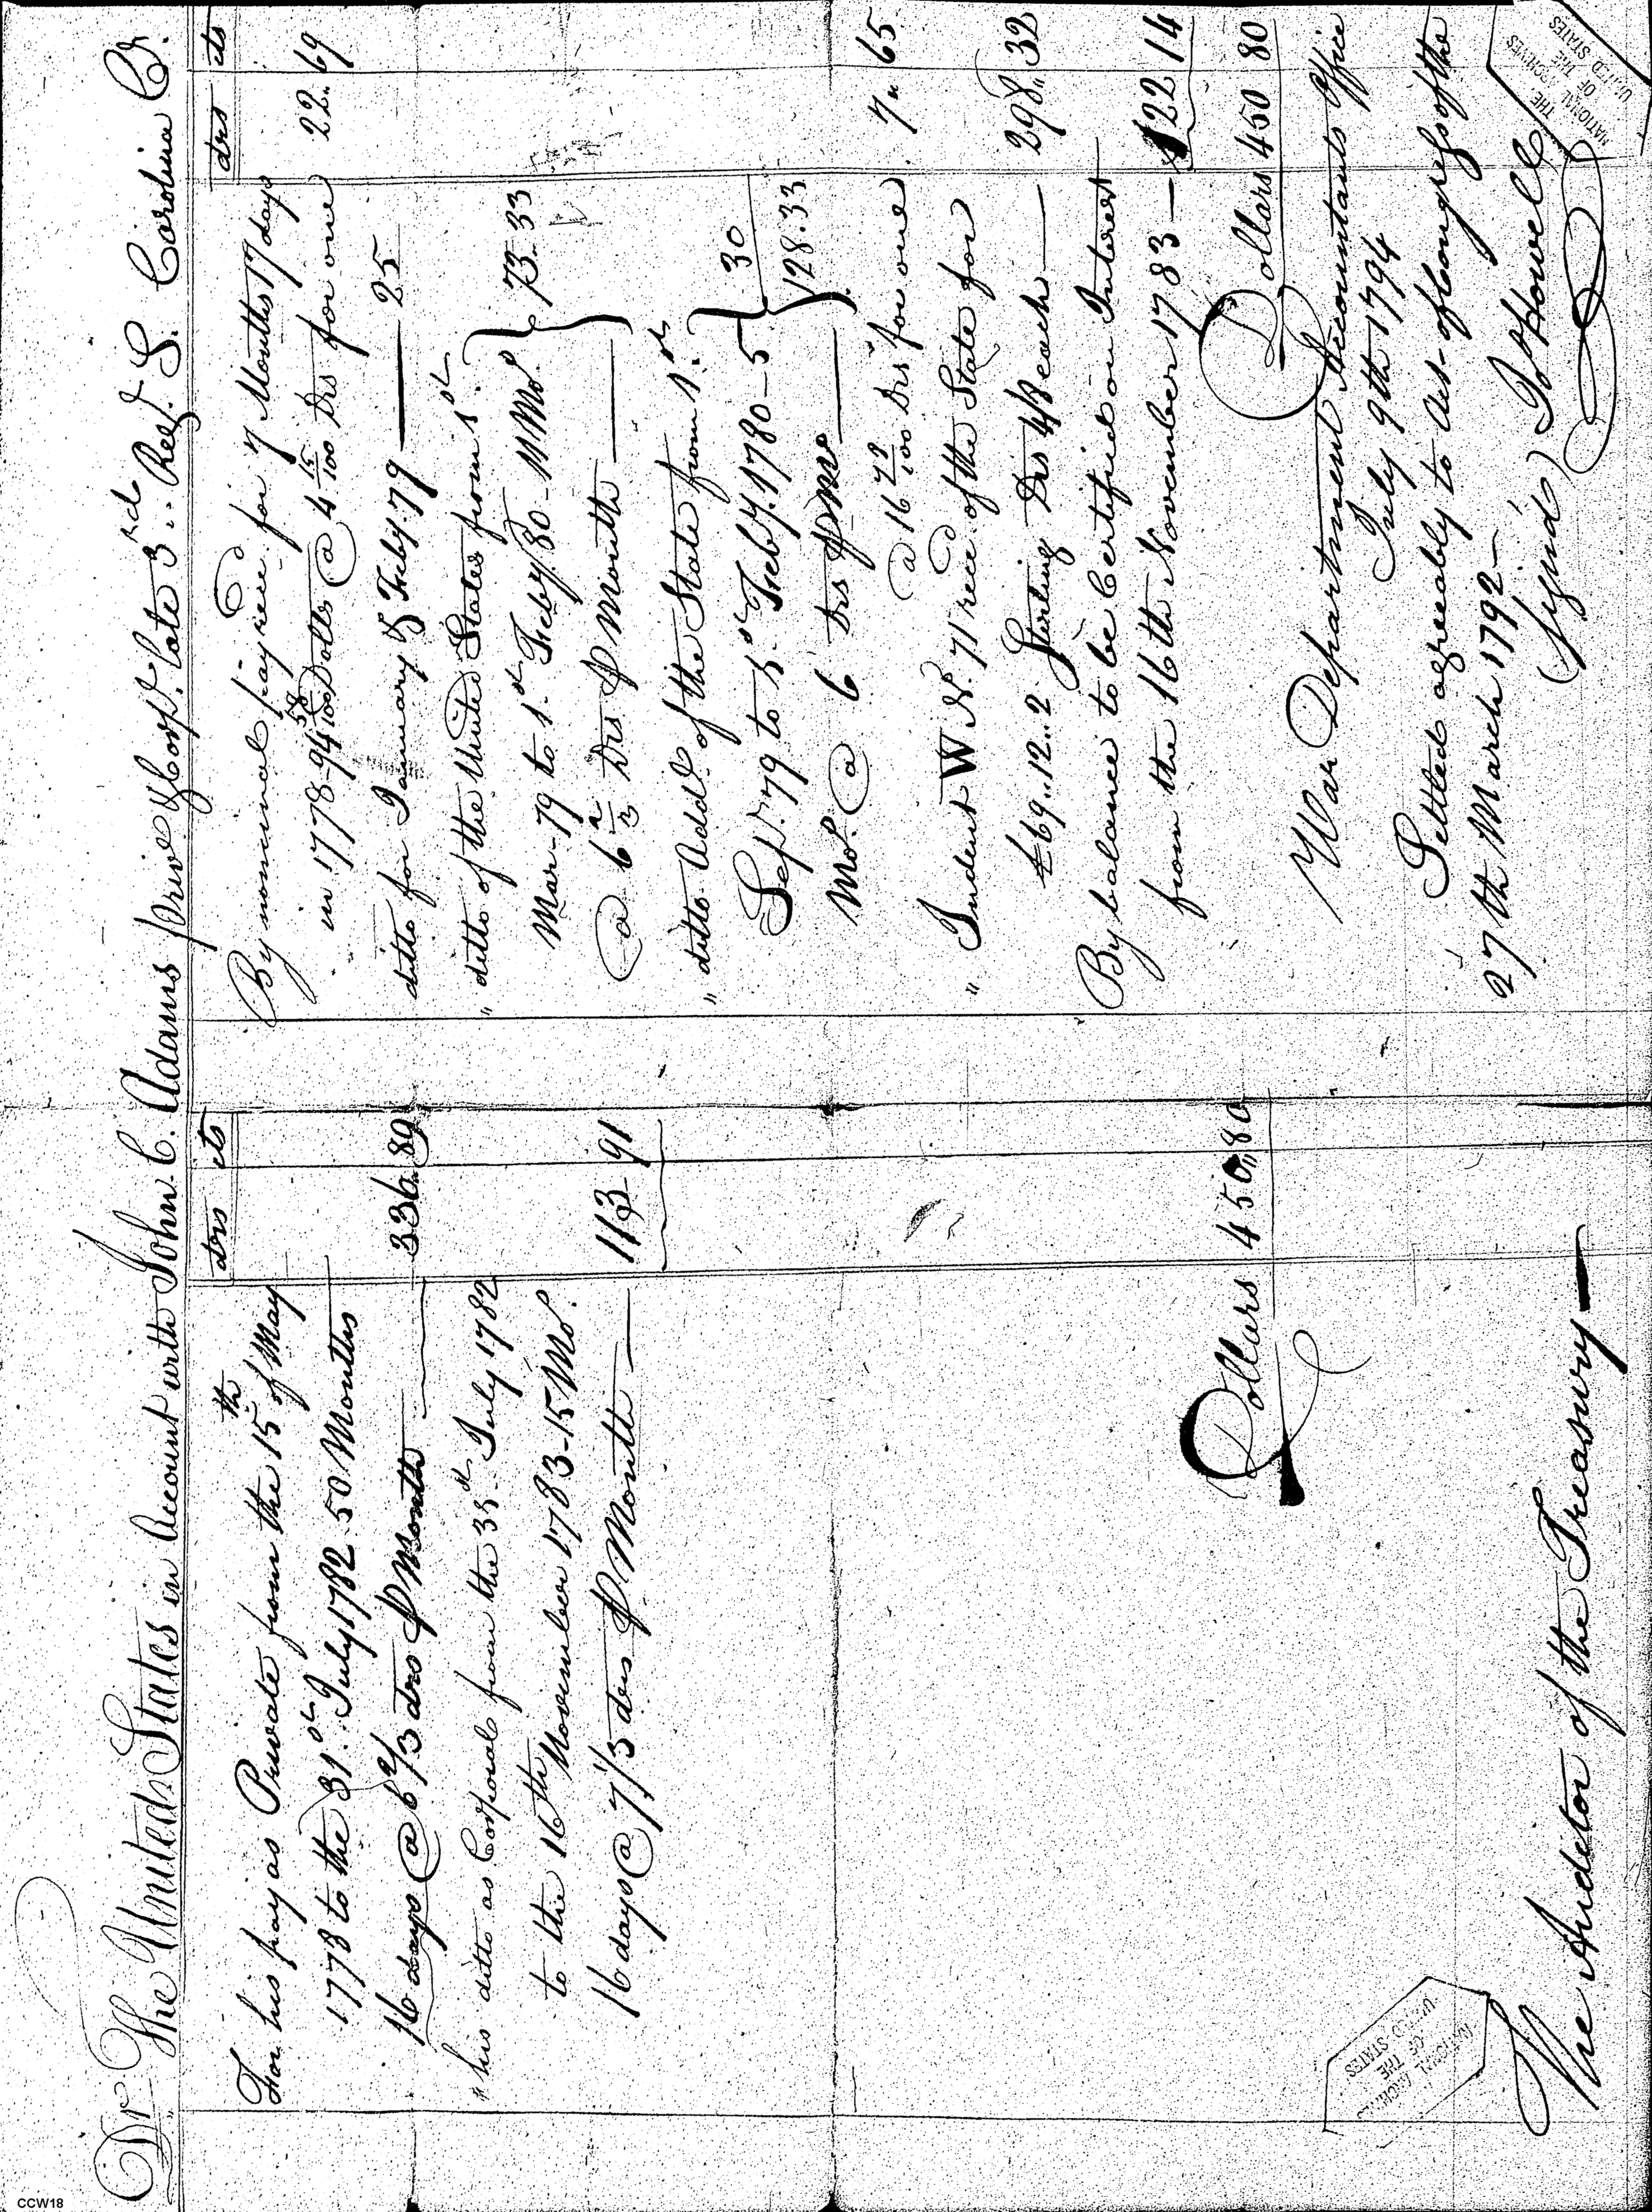 Dr The United States in Account with John C. Adams priv. & Corpl. late 3rd Regt. S. Carolina Cr.
drs cts
For his pay as Private from the 15th of May
1778 to the 31st. July 1782 50 Months
16 days @ 6 2/3 drs P Month 336.89
" his ditto as Corporal from the 31st July 1782
to the 16th November 1783-15 Mo.
16 days @ 7 1/3 drs P Month 113-91
Dollars 450.80
The Auditor of the Treasury
drs cts
By nominal pay rece'd for 7 Months 17 days
in 1778-94 58/100 Dolls @ 4 15/100 Drs for one 22.69
ditto for January & Feby. 79 25
" ditto of the United States from 1st.
Mar-79 to 1st Feby 80-11 Mo. 73.33
@ 6 2/3 Drs P Month
" ditto Addl. of the State from 1st.
Sepr. 79 to 1st Feby. 1780-5 30
Mo. @ 6 Drs P Mo 128.33
@ 16 79/100 Drs for one 7" 65
" Indent W No. 71 rece'd of the State for
£69..12..2 Sterling Drs 4/8 each 298" 32
By balance to be Certified on Interest
from the 16th November 1783 122 14
Dollars 450 80
War Department Accountants Office
July 9th 1794
Settled agreeably to Act of Congress of the
27th March 1792
(Signd) Jo Howell
NATIONAL ARCHIVES
OF THE
UNITED STATES
THE NATIONAL ARCHIVES
OF THE
UNITED STATES
CCW18